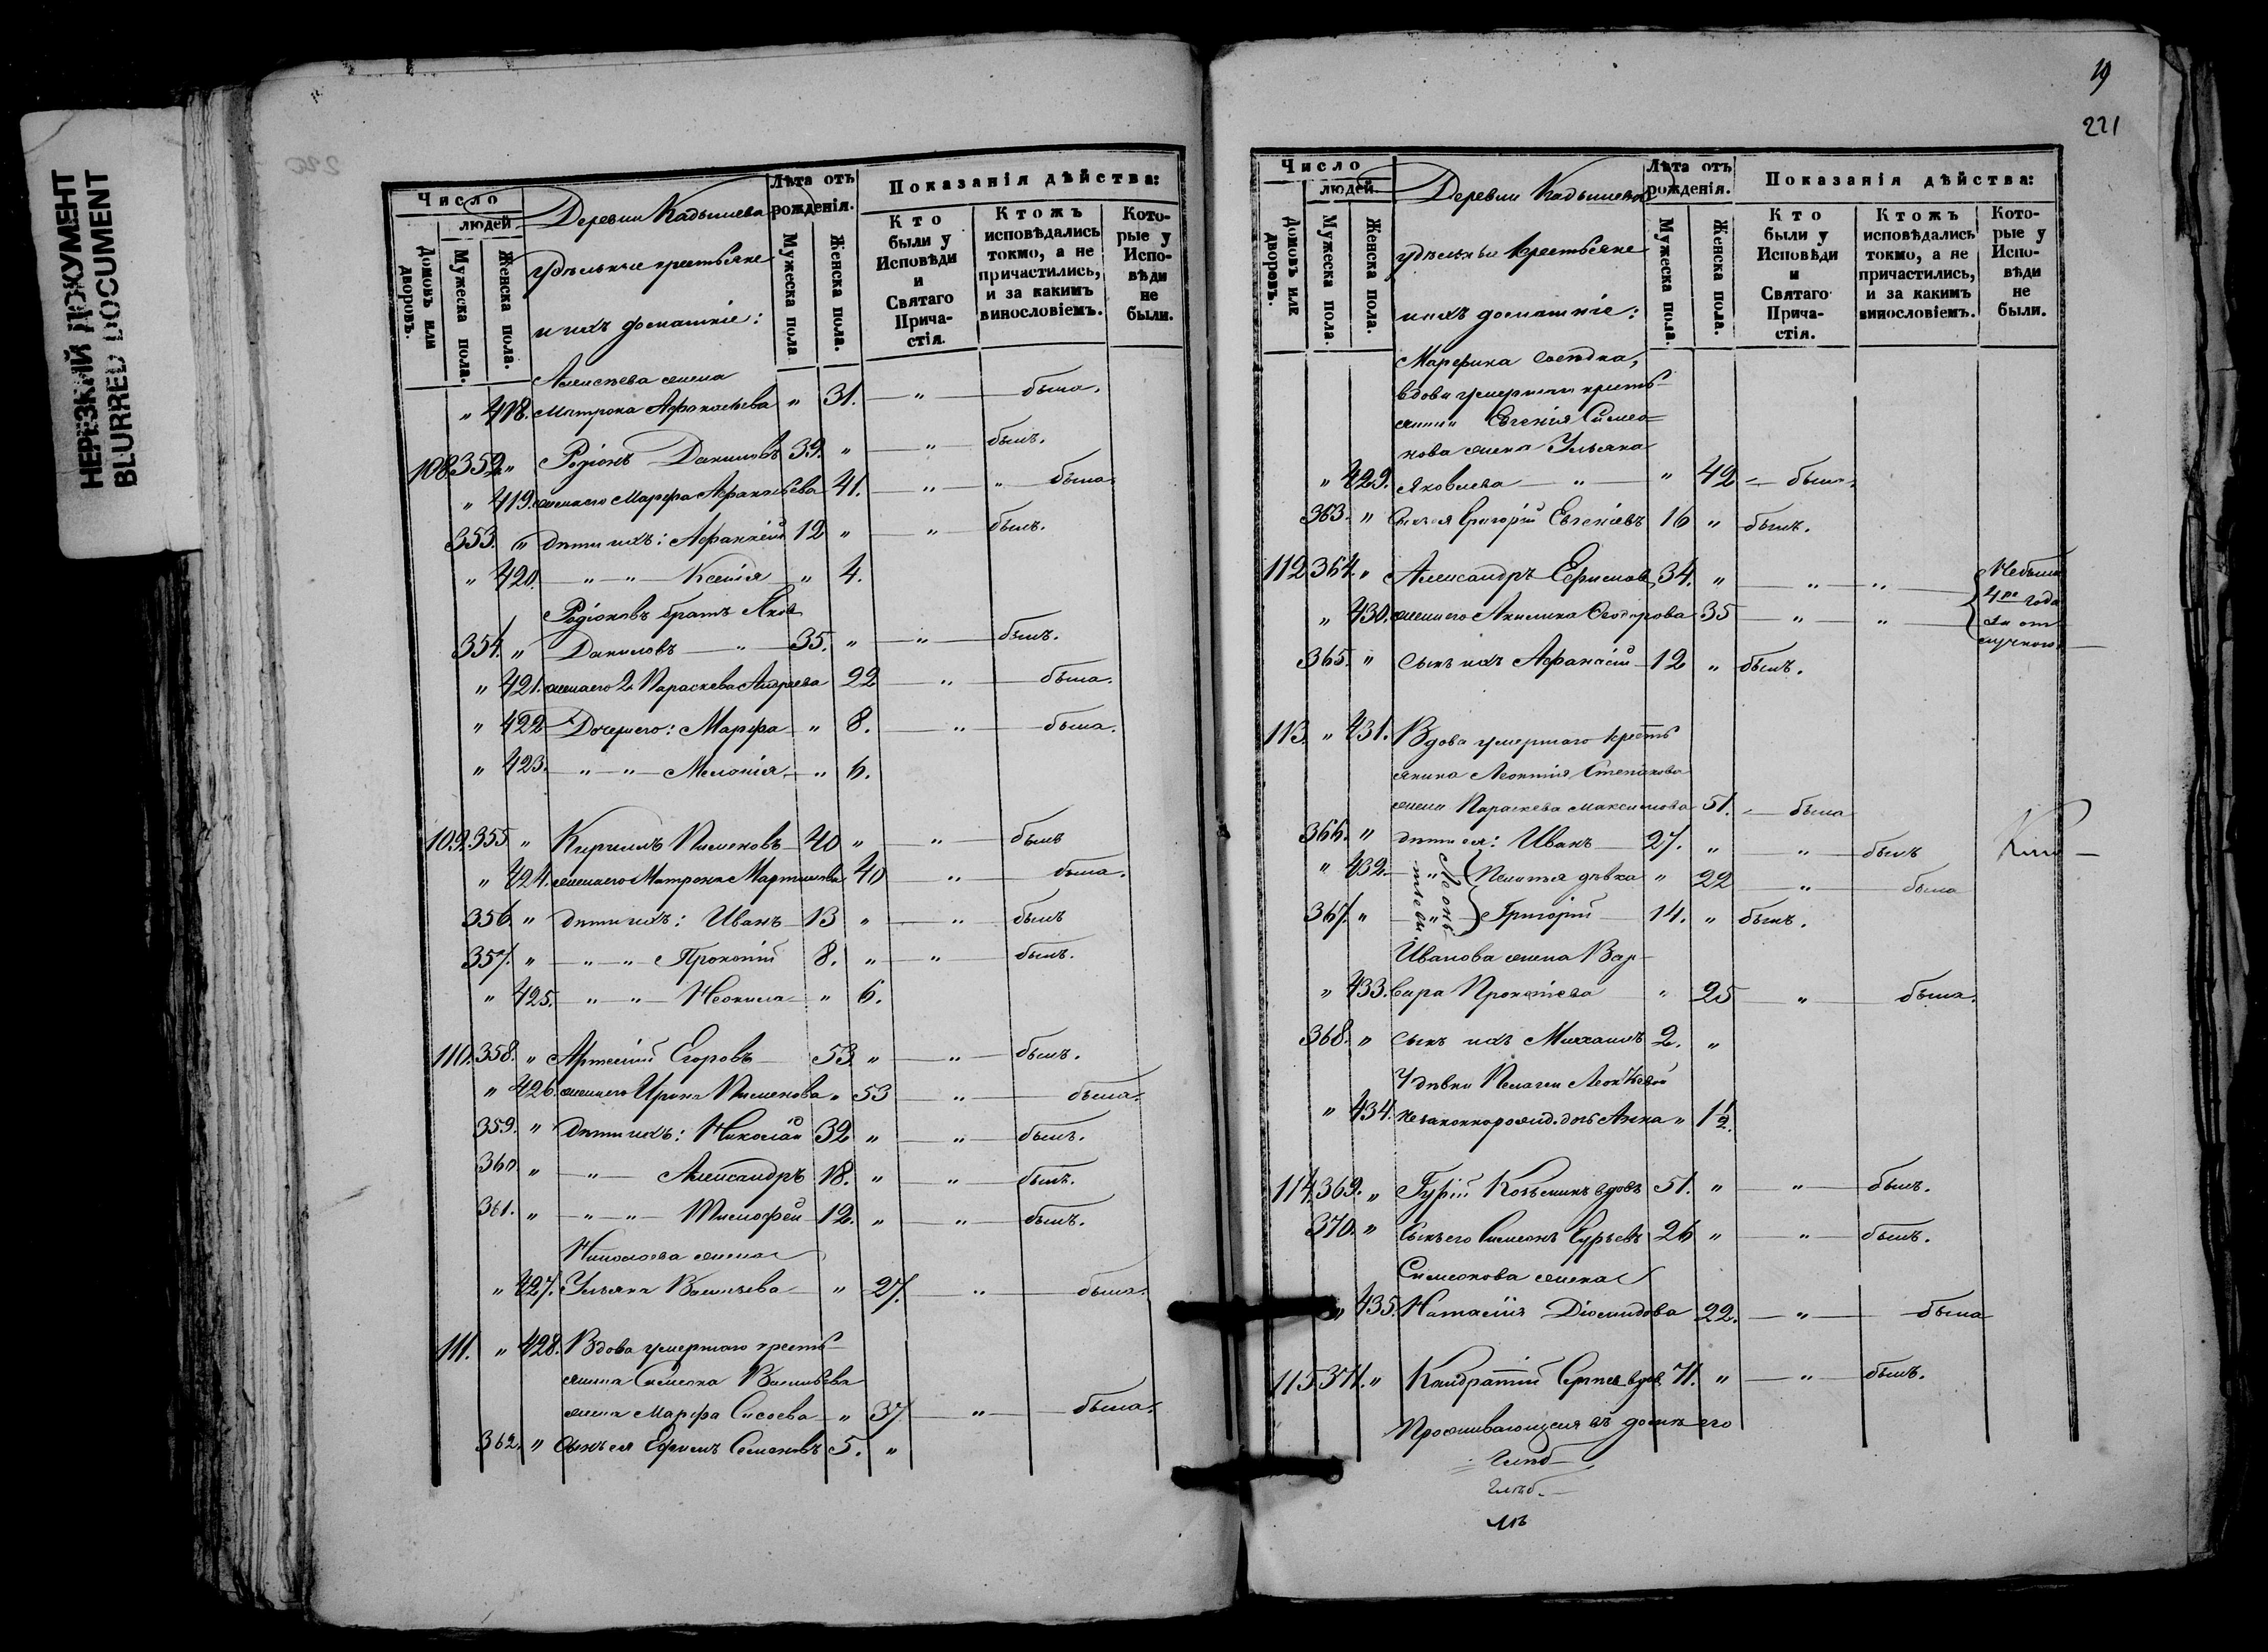 НЕРЕЗКИЙ ДОКУМЕНТ
BLURRED DOCUMENT
Число
людей
Домовъ или дворовъ.
Мужеска пола.
Женска пола.
Деревни Кадышева
удѣльные крестьяне
и ихъ домашніе:
Лѣта отъ рожденія.
Мужеска пола
Женска пола.
Показанія дѣйства:
Кто были у Исповѣди и Святаго Причастія.
Ктожъ исповѣдались токмо, а не причастились, и за какимъ винословіемъ.
Которые у Исповѣди не были.
Алексѣева жена
" 418. Матрона Афанасьева " 31. " была.
108. 352. " Родіонъ Даниловъ 39. " " былъ.
" 419. жена его Марфа Афанасьева 41. " " была.
353. " дѣти ихъ: Афанасій 12 " " былъ.
" 420. " " Ксенія " 4.
Родіоновъ братъ Яков
354. " Даниловъ " 35. " " былъ.
" 421. жена его 2 Параскева Андреева 22 " была.
" 422 Дочери его: Марфа " 8. " была.
" 423. " " Меланія " 6.
109. 355 " Кириллъ Пименовъ 40 " " былъ
" 424. жена его Матрона Мартинова 40 " была.
356. " дѣти ихъ: Иванъ 13 " " былъ
357. " " " Прокопій 8. " " былъ.
" 425. " " Неонила " 6.
110. 358. " Артемій Егоровъ 53 " " былъ.
" 426. жена его Ирина Пименова " 53 " была.
359. " Дѣти ихъ: Николай 32 " " былъ.
360 " " Александръ 18. " " былъ.
361. " " " Тимофей 12. " " былъ.
Николаева жена
" 427. Ульяна Васильева " 27. " была.
111. " 428. Вдова умершаго кресть-
янина Симеона Васильева
жена Марфа Сисоева " 37 " была.
362. " Сынъ ея Ефимъ Семеновъ 5. "
19
221
Число
людей
Домовъ или дворовъ.
Мужеска пола.
Женска пола.
Деревни Кадышева
удѣльные крестьяне
и ихъ домашніе:
Лѣта отъ рожденія.
Мужеска пола.
Женска пола.
Показанія дѣйства:
Кто были у Исповѣди и Святаго Причастія.
Ктожъ исповѣдались токмо, а не причастились, и за какимъ винословіемъ.
Которые у Исповѣди не были.
Марфина
вдова умершаго кресть-
янина Евгенія Симео-
нова жена Ульяна
" 429. Яковлева " " 42 была.
363. " Сынъ ея Григорій Евгеніевъ 16 " былъ.
112 364. " Александръ Ефимов 34. " " " Небыли
" 430. жена его Акилина Ѳеодорова 35 " " 4ре года
за от-
лучкою.
365. " Сынъ ихъ Афанасій 12 " былъ.
113. " 431. Вдова умершаго кресть
янина Леонтія Степанова
жена Параскева Максимова 51. была
366. " дѣти ея: Иванъ 27. " " былъ
" 432. " Пелагея дѣвка " 22 " была
367. " " Григорій 14. " былъ.
Леонтьевы
Иванова жена Вар-
" 433. вара Прокопіева " 25 " была.
368. " сынъ ихъ Михаилъ 2. "
У дѣвки Пелагеи Леонтьевой
" 434. незаконнорожд. дочь Анна " 1 1/2.
114. 369. " Гурій Козьминъ вдовъ 51. " " былъ.
370. " Сынъ его Симеонъ Гурьевъ 26 " " былъ.
Симеонова жена
" 435. Наталія Діомидова 22. " была
115 371. " Кондратій Сергѣев вдов. 71. " " былъ.
Проживающія въ домѣ его